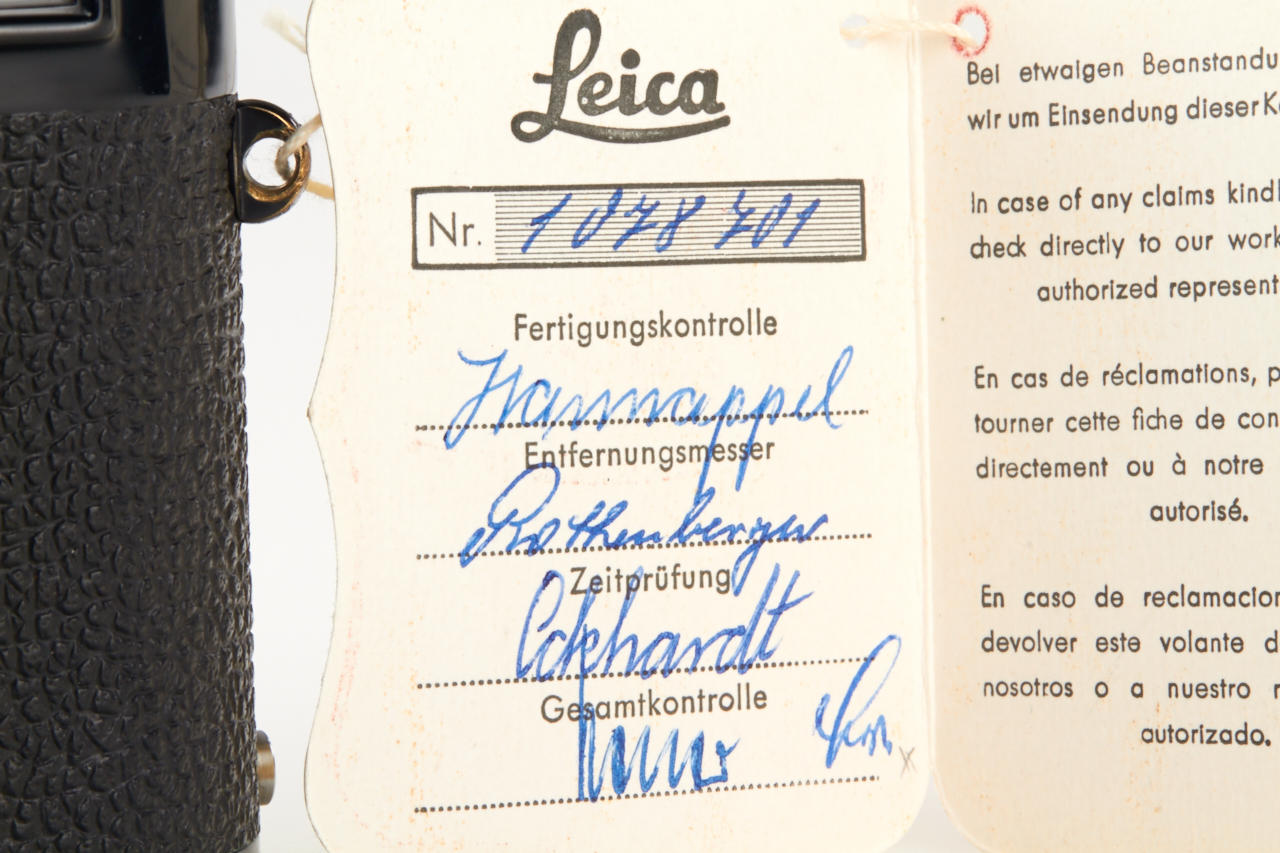 Leica
Nr. 1078701
Fertigungskontrolle
Hannappel
Entfernungsmesser
Rothenberger
Zeitprüfung
Eckhardt
Gesamtkontrolle
x
Bei etwaigen Beanstandu
wir um Einsendung dieser K
In case of any claims kindl
check directly to our work
authorized represent
En cas de réclamations, p
tourner cette fiche de con
directement ou à notre
autorisé.
En caso de reclamacion
devolver este volante d
nosotros o a nuestro r
autorizado.